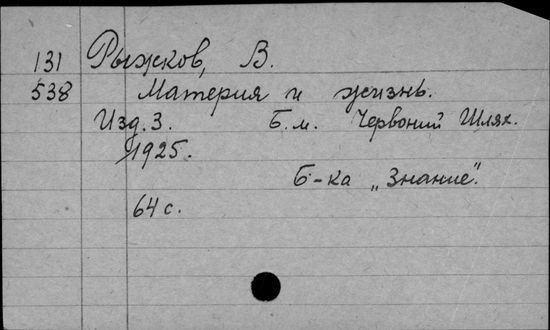 131 Рыжков, В.
538 Материя и жизнь.
Изд. 3. Б. м. Червоний Шлях.
1925.
Б-ка „Знание".
64 с.